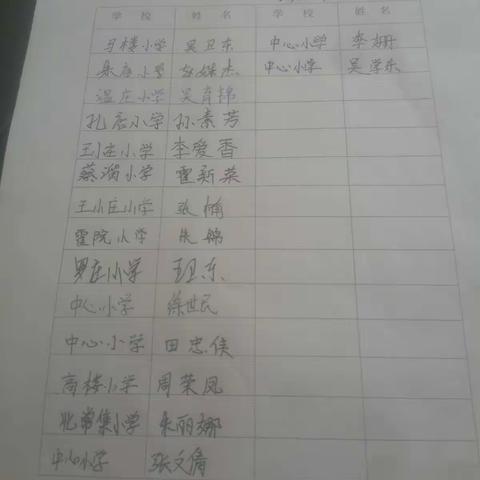 学 校 姓 名 学 校 姓 名
马楼小学 吴卫东 中心小学 李姗
朱庙小学 中心小学 吴学东
温庄小学 吴育锦
孔庙小学 孙素芳
刘庄小学 李爱香
蔡湖小学 霍新荣
王小庄小学 张楠
霍院小学 朱锦
罗庄小学 王卫东
中心小学 徐世民
中心小学 田忠侠
高楼小学 周荣凤
北常集小学 朱丽娜
中心小学 张文倩